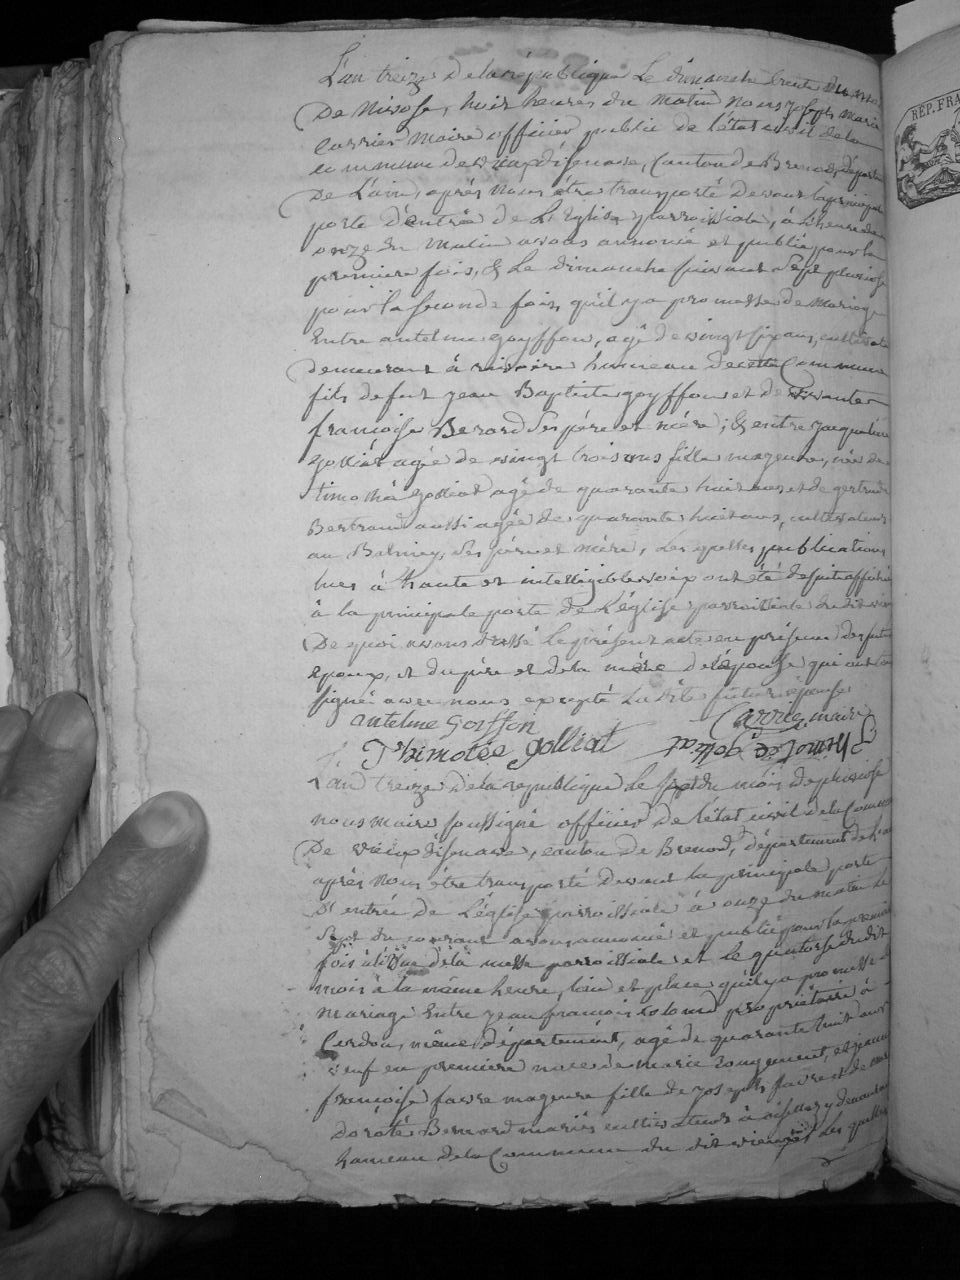 L'an treize de la république Le dimanche trente du mois
De Nivose, huit heures du matin nous joseph marie
Carrier Maire officier public de l'état civil de la
commune de vieu d'isenave, Canton de Brenod, départ
De L'ain, après nous être transporté devant la principale
porte d'entrée de L'Eglise parroissiale, à L'heure de
onze du Matin avons annoncé et publié pour la
premiere fois, & Le dimanche suivant sept pluviose
pour la seconde fois, qu'il y a promesse de Mariage
Entre antelme goyffon, agé de vingt six ans, cultivateur
Demeurant à hameau de cette Commune
fils de feu jean Baptiste goyffon et de vivante
francoise Berard ses père et mère; & entre jaqueline
golliat agée de vingt trois ans fille mageure, née de
timothé golliat agé de quarante huit ans et de gertrude
Bertrand aussi agée de quarante huit ans, cultivateurs
au Balmey, ses père et mère, Les quelles publications
lues à haute et intelligible voix ont été de suite affiché
à la principale porte de L'église parroissiale du dit vieu
De quoi avons dressé le présent acte en présence des futurs
Epoux, et du père et de la mère de l'épouse qui ont
signé avec nous excepté La dite future épouse
antelme Goiffon Carrier maire
Thimotée golliat
L'an treize de la république le sept du mois de pluviose
nous maire soussigné officier de l'état civil de la Commune
De vieux d'isenave, canton de Brenod, département de L'ain
après nous être transporté devant la principale porte
D'entrée de L'église parroissiale à onze du matin le
sept du courant avons annoncé et publié pour la premiere
fois à l'issue de la messe parroissiale et le quatorze du dit
mois à la même heure, lieu et place qu'il y a promesse de
mariage Entre jean francois proprietaire à
Cerdon, même département, agé de quarante huit ans
veuf en premiere noces de marie et jeanne
françoise favre mageure fille de joseph favre et de
doroté Bernard mariés cultivateurs à
hameau de la Commune du dit vieu Les quelles
REP. FRA